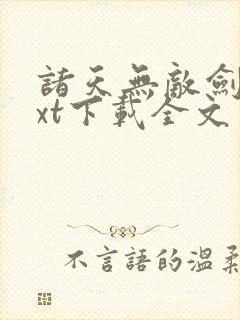 諸天無敵劍
xt下載全文
不言語的溫柔